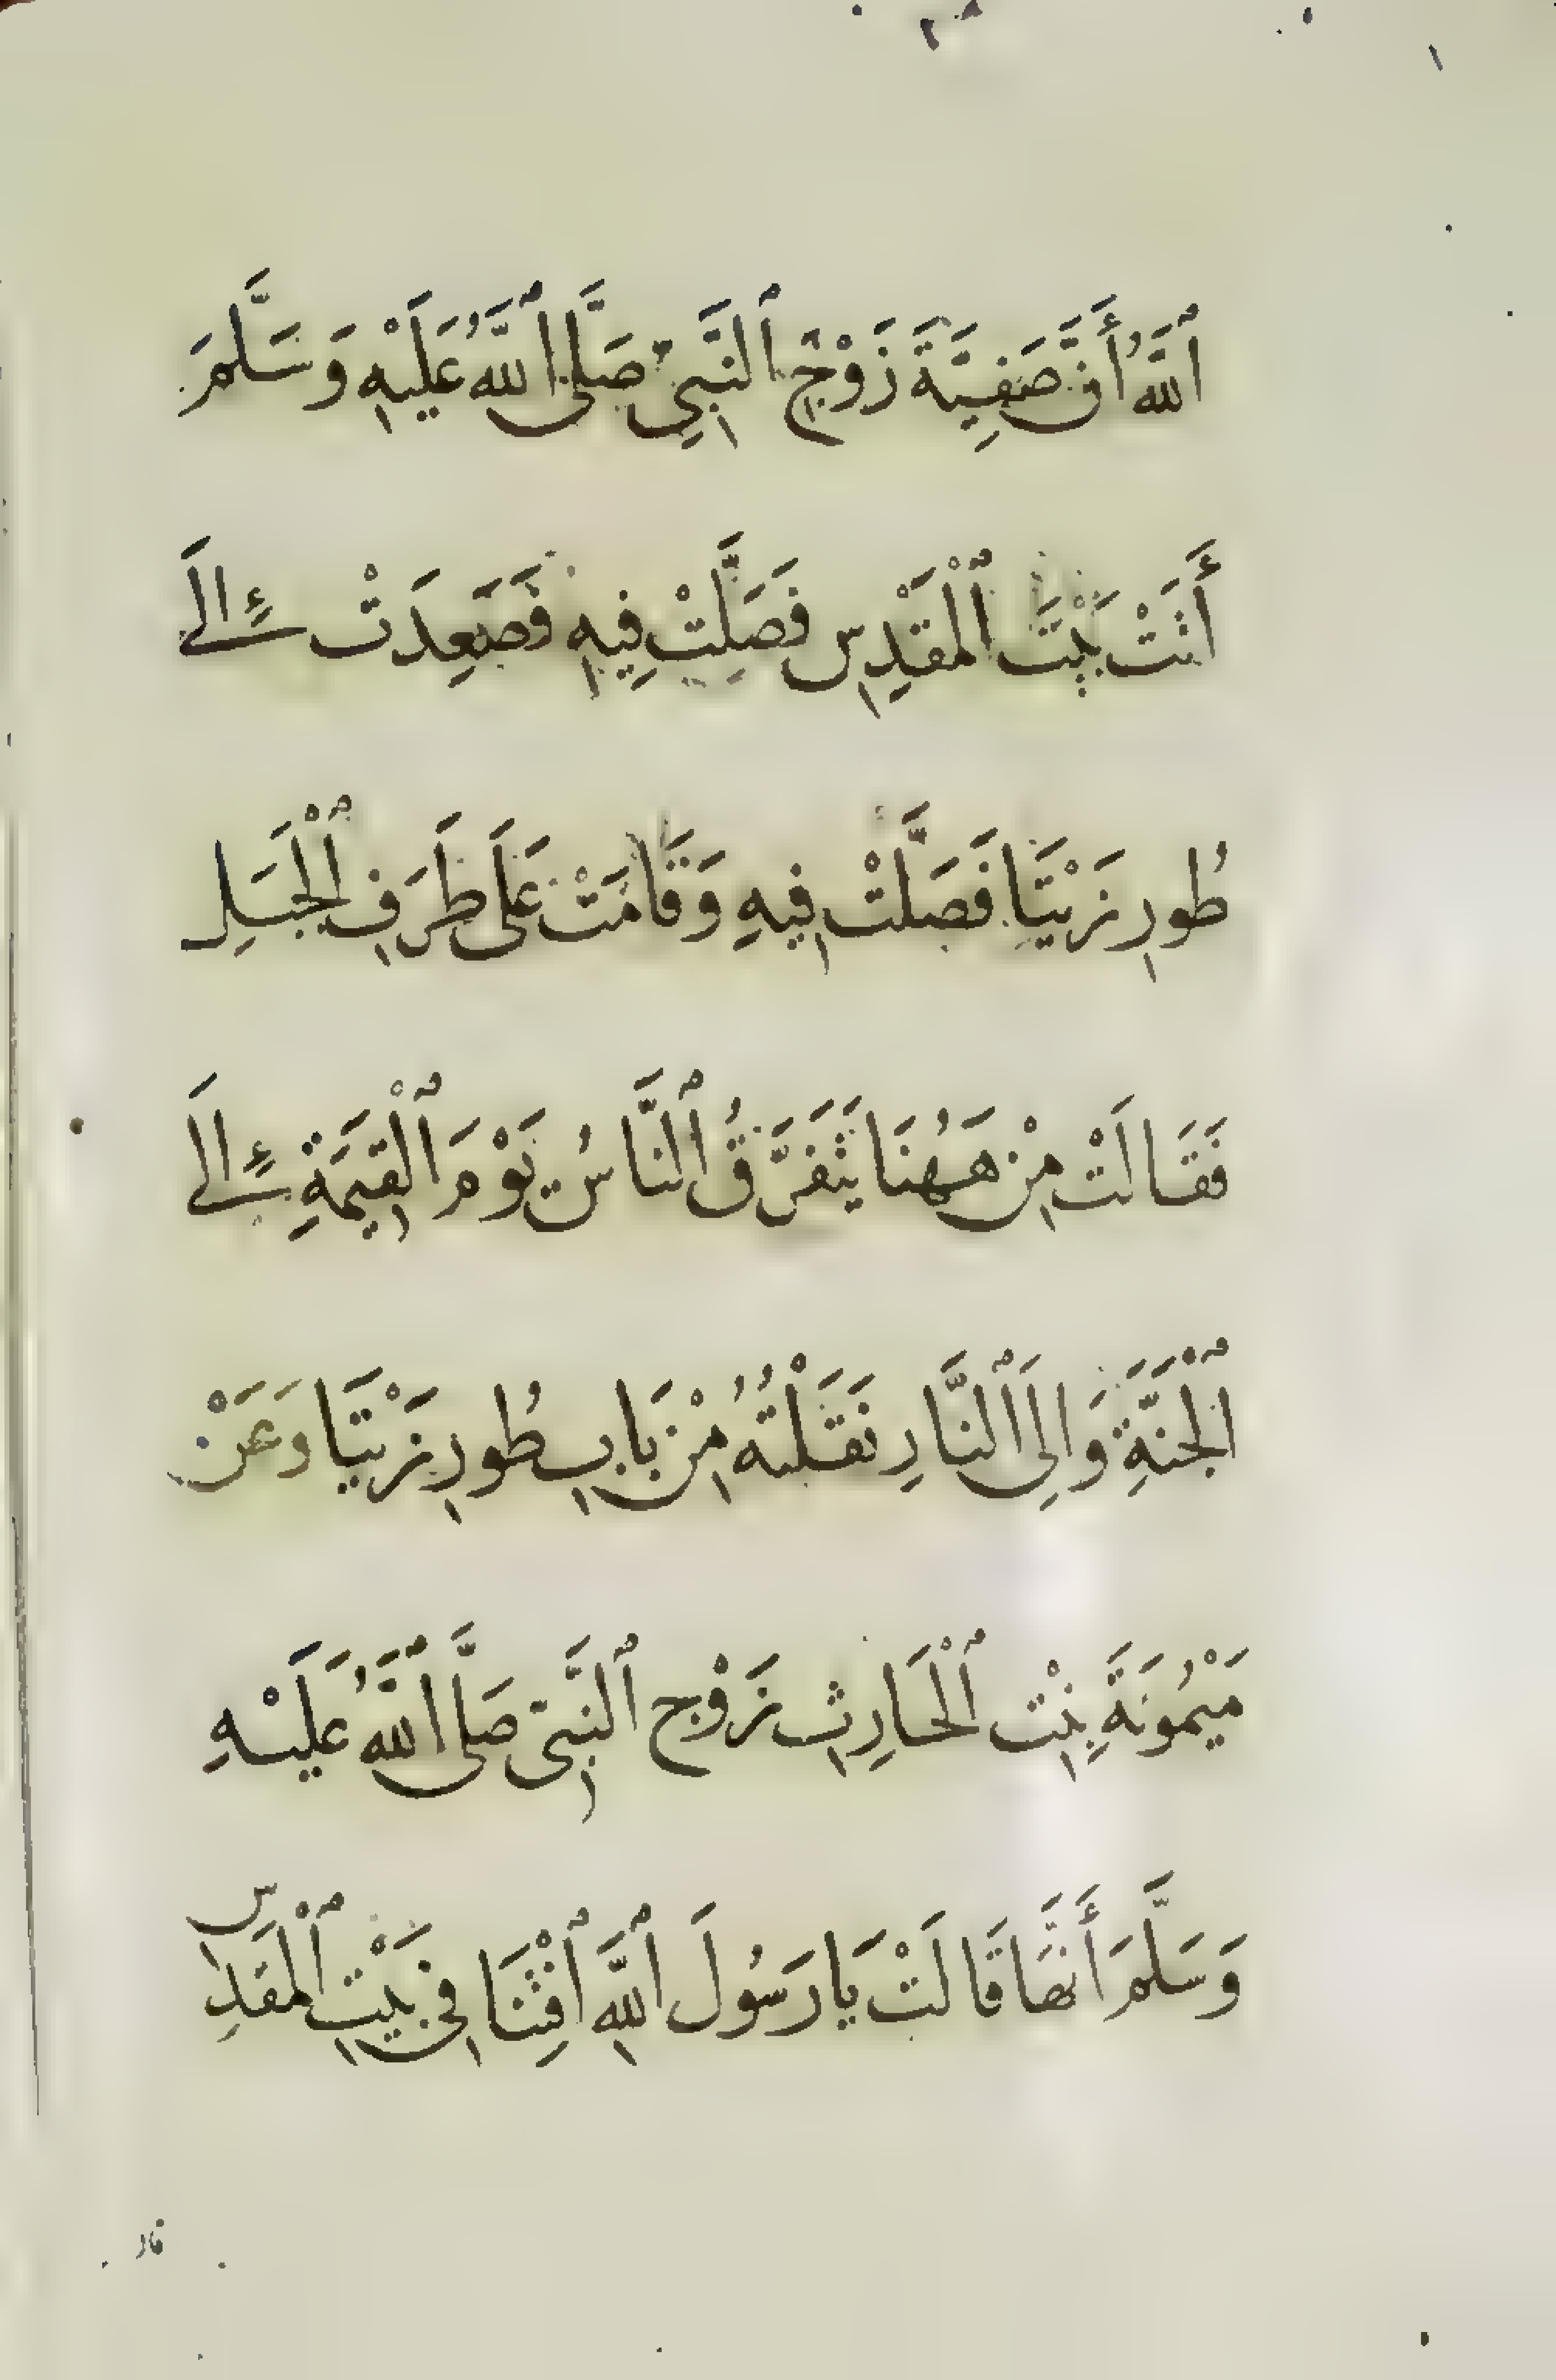 ٱللَّهُ أَنَّ صَفِيَّةَ زَوْجِ ٱلنَّبِيِّ صَلَّى ٱللَّهُ عَلَيْهِ وَسَلَّمَ
أَتَتْ بَيْتَ ٱلْمَقْدِسِ فَصَلَّتْ فِيهِ فَصَعِدَتْ إِلَى
طُورِ زَيْتَا فَصَلَّتْ فِيهِ وَقَامَتْ عَلَى طَرَفِ ٱلْجَبَلِ
فَقَالَتْ مِنْ هَهُنَا يَتَفَرَّقُ ٱلنَّاسُ يَوْمَ ٱلْقِيَمَةِ إِلَى
ٱلْجَنَّةِ وَالِى ٱلنَّارِ نَقَلْتُهُ مِنْ بَابِ طُورِ زَيْتَا وَعَنْ
مَيْمُونَةَ بِنْتِ ٱلْحَارِثِ زَوْجِ ٱلنَّبِيِّ صَلَّى ٱللَّهُ عَلَيْهِ
وَسَلَّمَ أَنَّهَا قَالَتْ يَا رَسُولَ ٱللَّهِ ٱفْتِنَا فِي بَيْتِ ٱلْمَقْدِسِ
قال